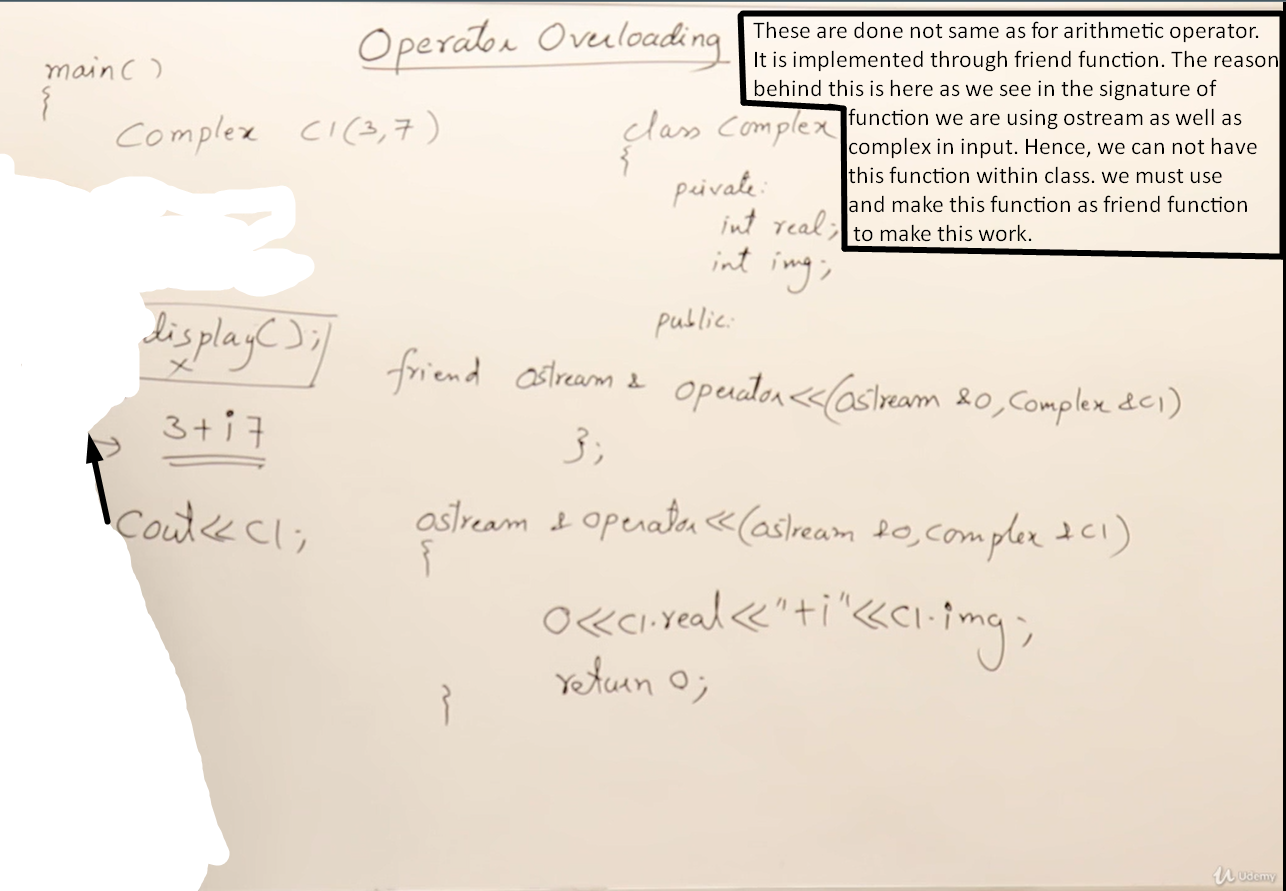 Operator Overloading
These are done not same as for arithmetic operator.
It is implemented through friend function. The reason
behind this is here as we see in the signature of
function we are using ostream as well as
complex in input. Hence, we can not have
this function within class. we must use
and make this function as friend function
to make this work.
main( )
{
Complex C1(3,7)
display( );
x
→ 3+i7
Cout<<C1;
class Complex
{
private:
int real;
int img;
public:
friend ostream & operator<<(ostream &o, Complex &C1)
};
ostream & operator<<(ostream &o, complex &C1)
{
o<<c1.real<<"+i"<<c1.img;
return o;
}
Udemy